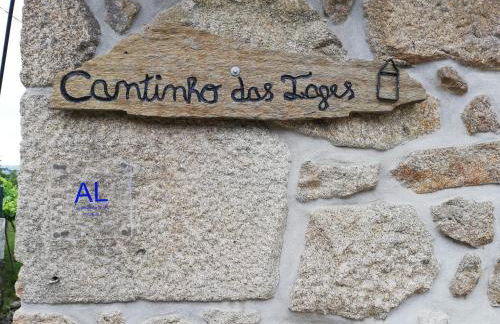 Cantinho das Lages
AL